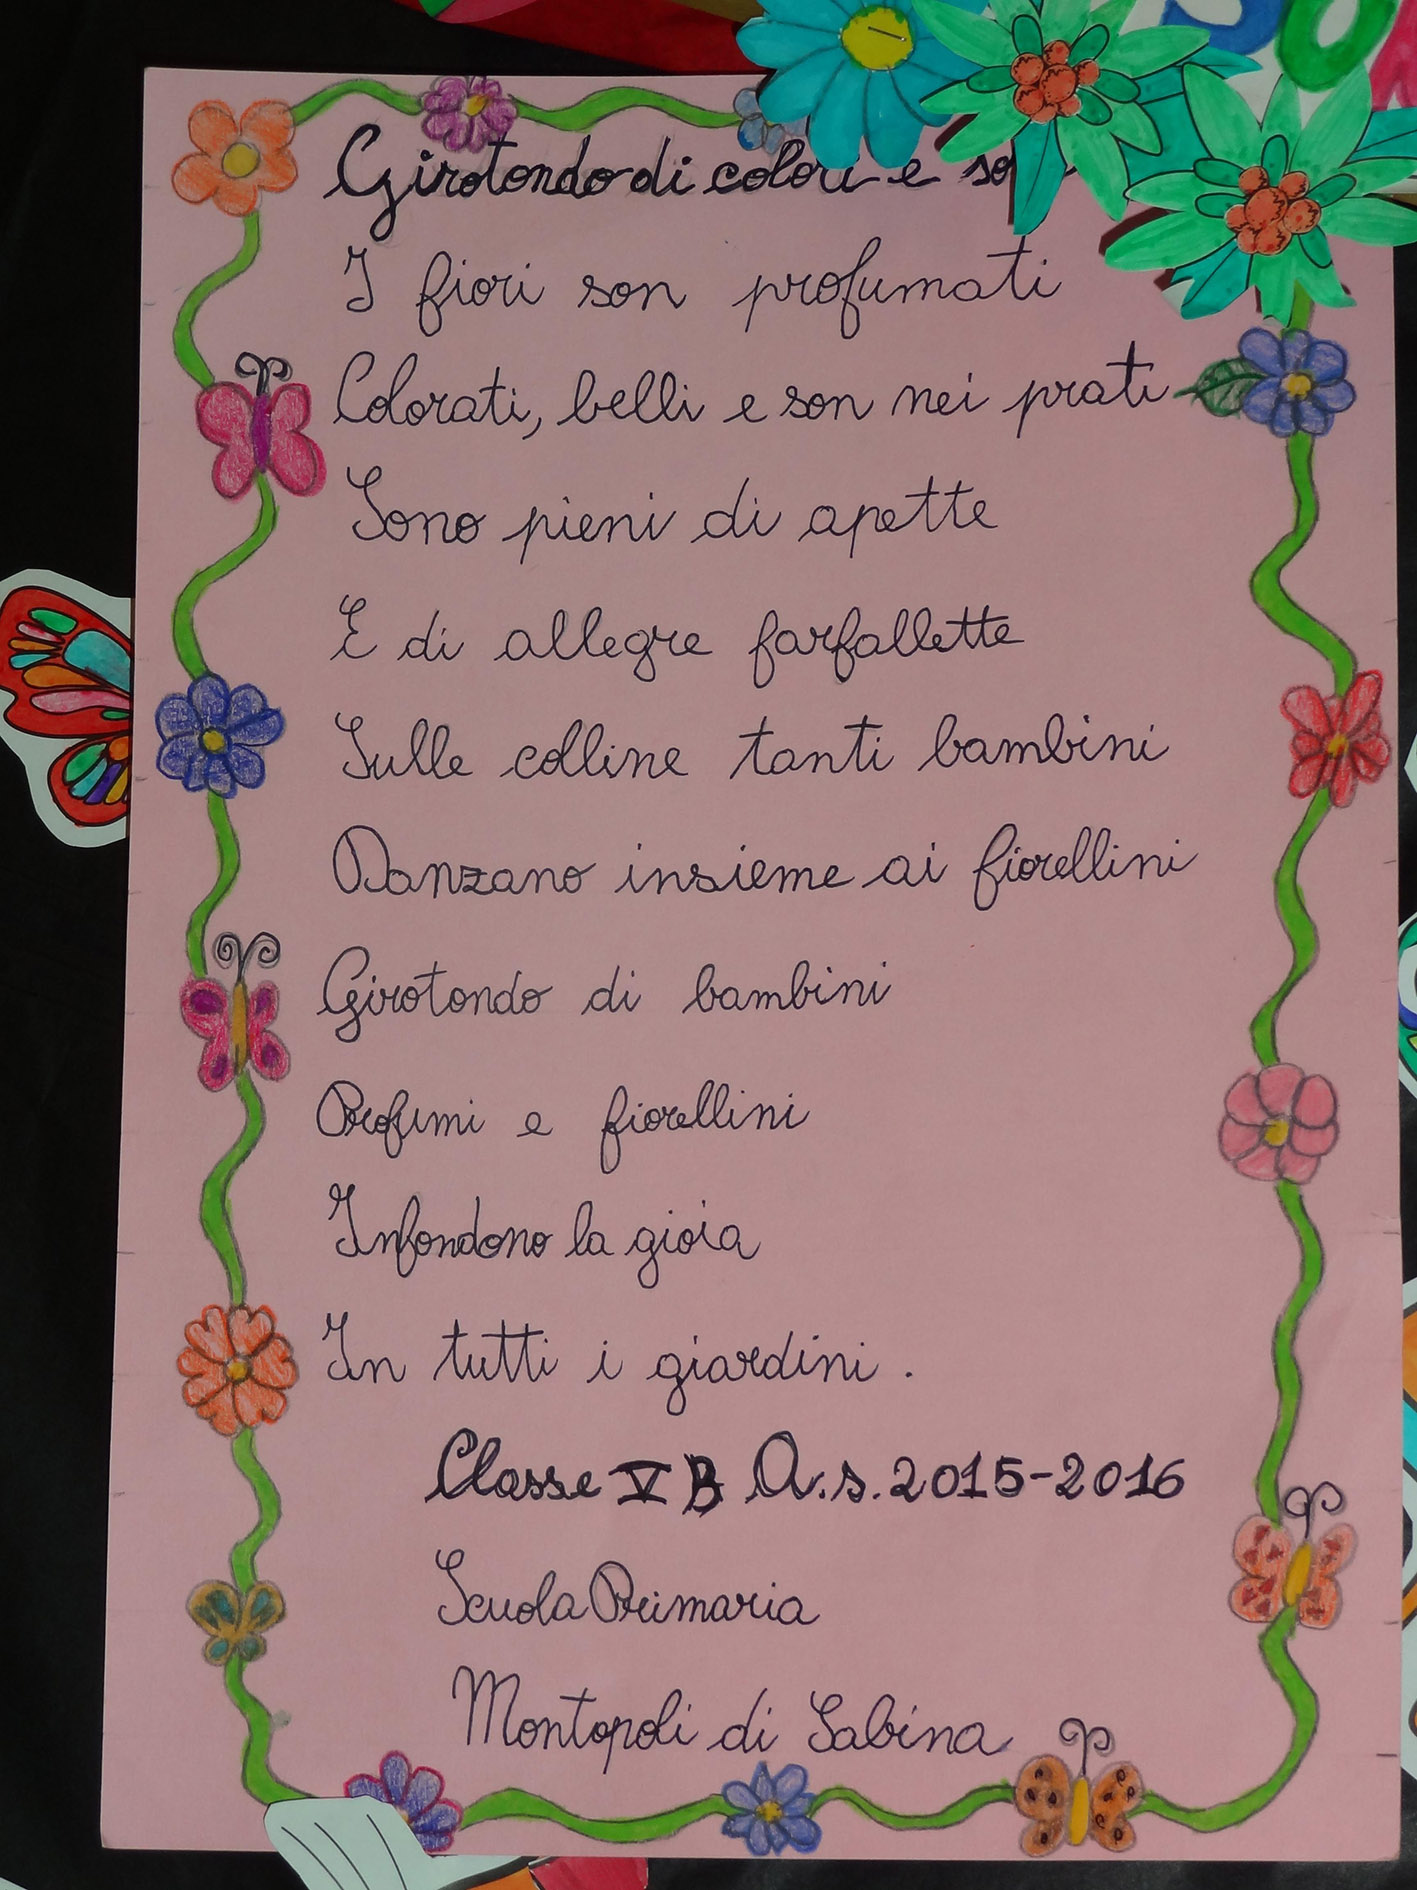 Girotondo di colori e
I fiori son profumati
Colorati, belli e son nei prati
Sono pieni di apette
E di allegre farfallette
Sulle colline tanti bambini
Danzano insieme ai fiorellini
Girotondo di bambini
Profumi e fiorellini
Infondono la gioia
In tutti i giardini.
Classe V B A.s. 2015-2016
Scuola Primaria
Montopoli di Sabina